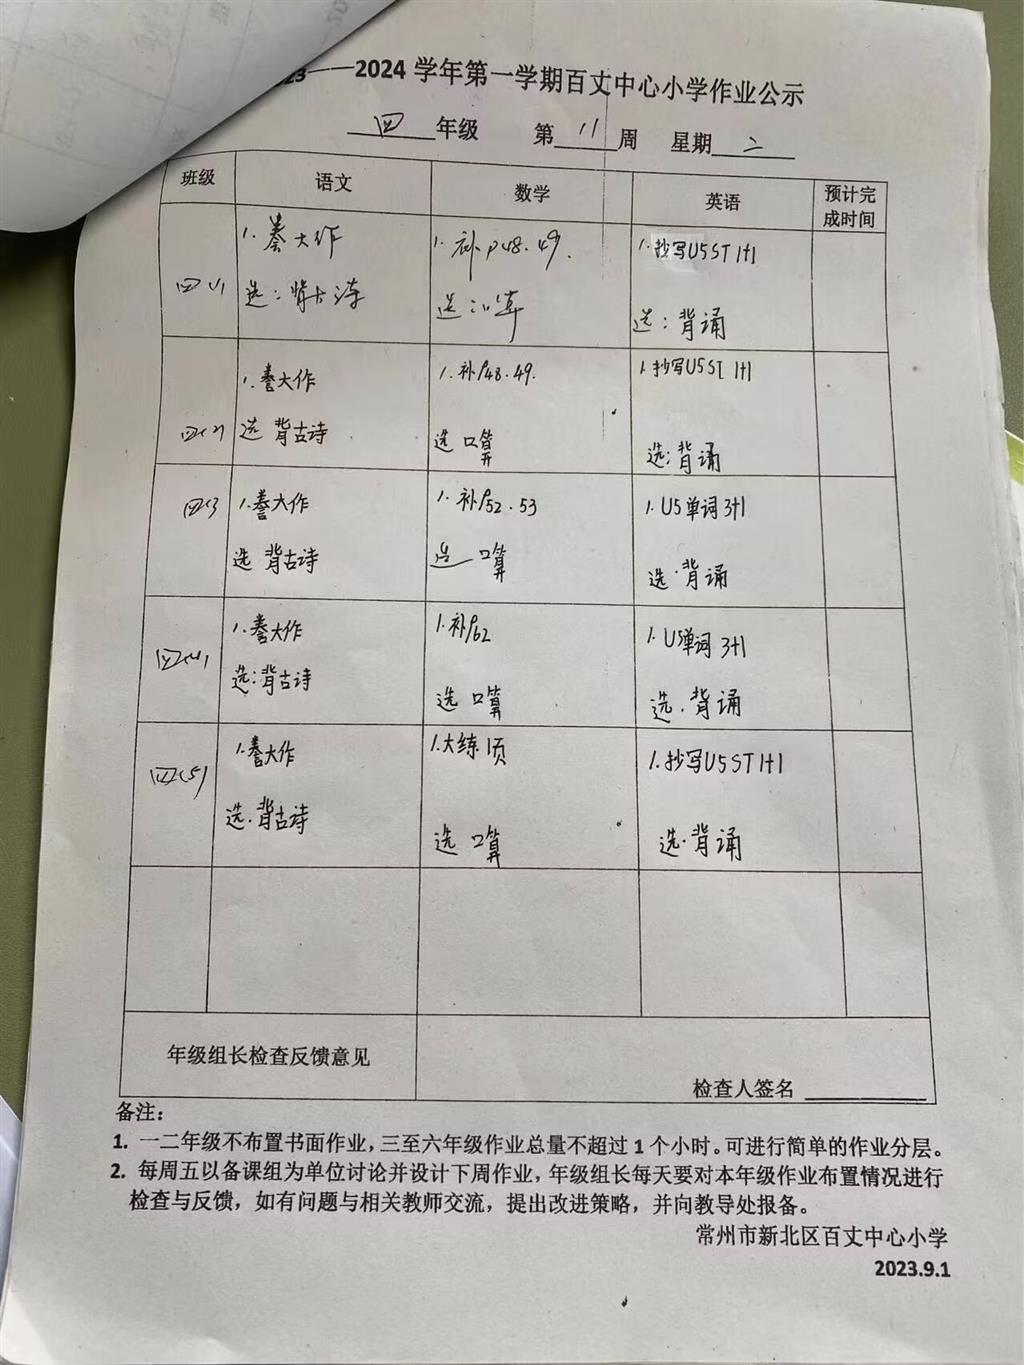 23——2024 学年第一学期百丈中心小学作业公示
四 年级 第 11 周 星期 二
班级 语文 数学 英语 预计完成时间
四(1) 1.誊大作 1.补P48.49. 1.抄写U5ST 1+1
选：背古诗 选:口算 选：背诵
四(2) 1.誊大作 1.补P48.49. 1.抄写U5ST 1+1
选 背古诗 选 口算 选:背诵
四(3 1.誊大作 1.补P52.53 1.U5单词3+1
选 背古诗 选 口算 选.背诵
四(4) 1.誊大作 1.补P62 1.U5单词3+1
选:背古诗 选 口算 选.背诵
四(5) 1.誊大作 1.大练1页 1.抄写U5ST 1+1
选.背古诗 选 口算 选.背诵
年级组长检查反馈意见 检查人签名
备注：
1. 一二年级不布置书面作业，三至六年级作业总量不超过 1 个小时。可进行简单的作业分层。
2. 每周五以备课组为单位讨论并设计下周作业，年级组长每天要对本年级作业布置情况进行
检查与反馈，如有问题与相关教师交流，提出改进策略，并向教导处报备。
常州市新北区百丈中心小学
2023.9.1